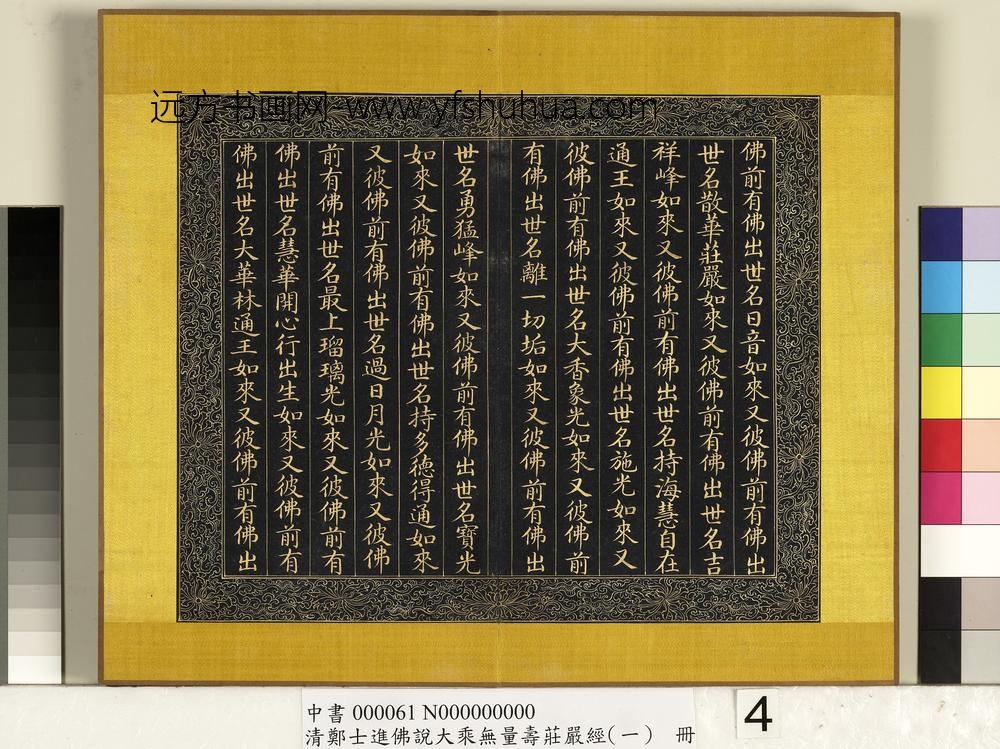 远方书画网-www.yfshuhua.com
佛前有佛出世名日音如來又彼佛前有佛出
世名散華莊嚴如來又彼佛前有佛出世名吉
祥峰如來又彼佛前有佛出世名持海慧自在
通王如來又彼佛前有佛出世名施光如來又
彼佛前有佛出世名大香象光如來又彼佛前
有佛出世名離一切垢如來又彼佛前有佛出
世名勇猛峰如來又彼佛前有佛出世名寶光
如來又彼佛前有佛出世名持多德得通如來
又彼佛前有佛出世名過日月光如來又彼佛
前有佛出世名最上瑠璃光如來又彼佛前有
佛出世名慧華開心行出生如來又彼佛前有
佛出世名大華林通王如來又彼佛前有佛出
中書 000061 N000000000
清鄭士進佛說大乘無量壽莊嚴經(一) 冊
4